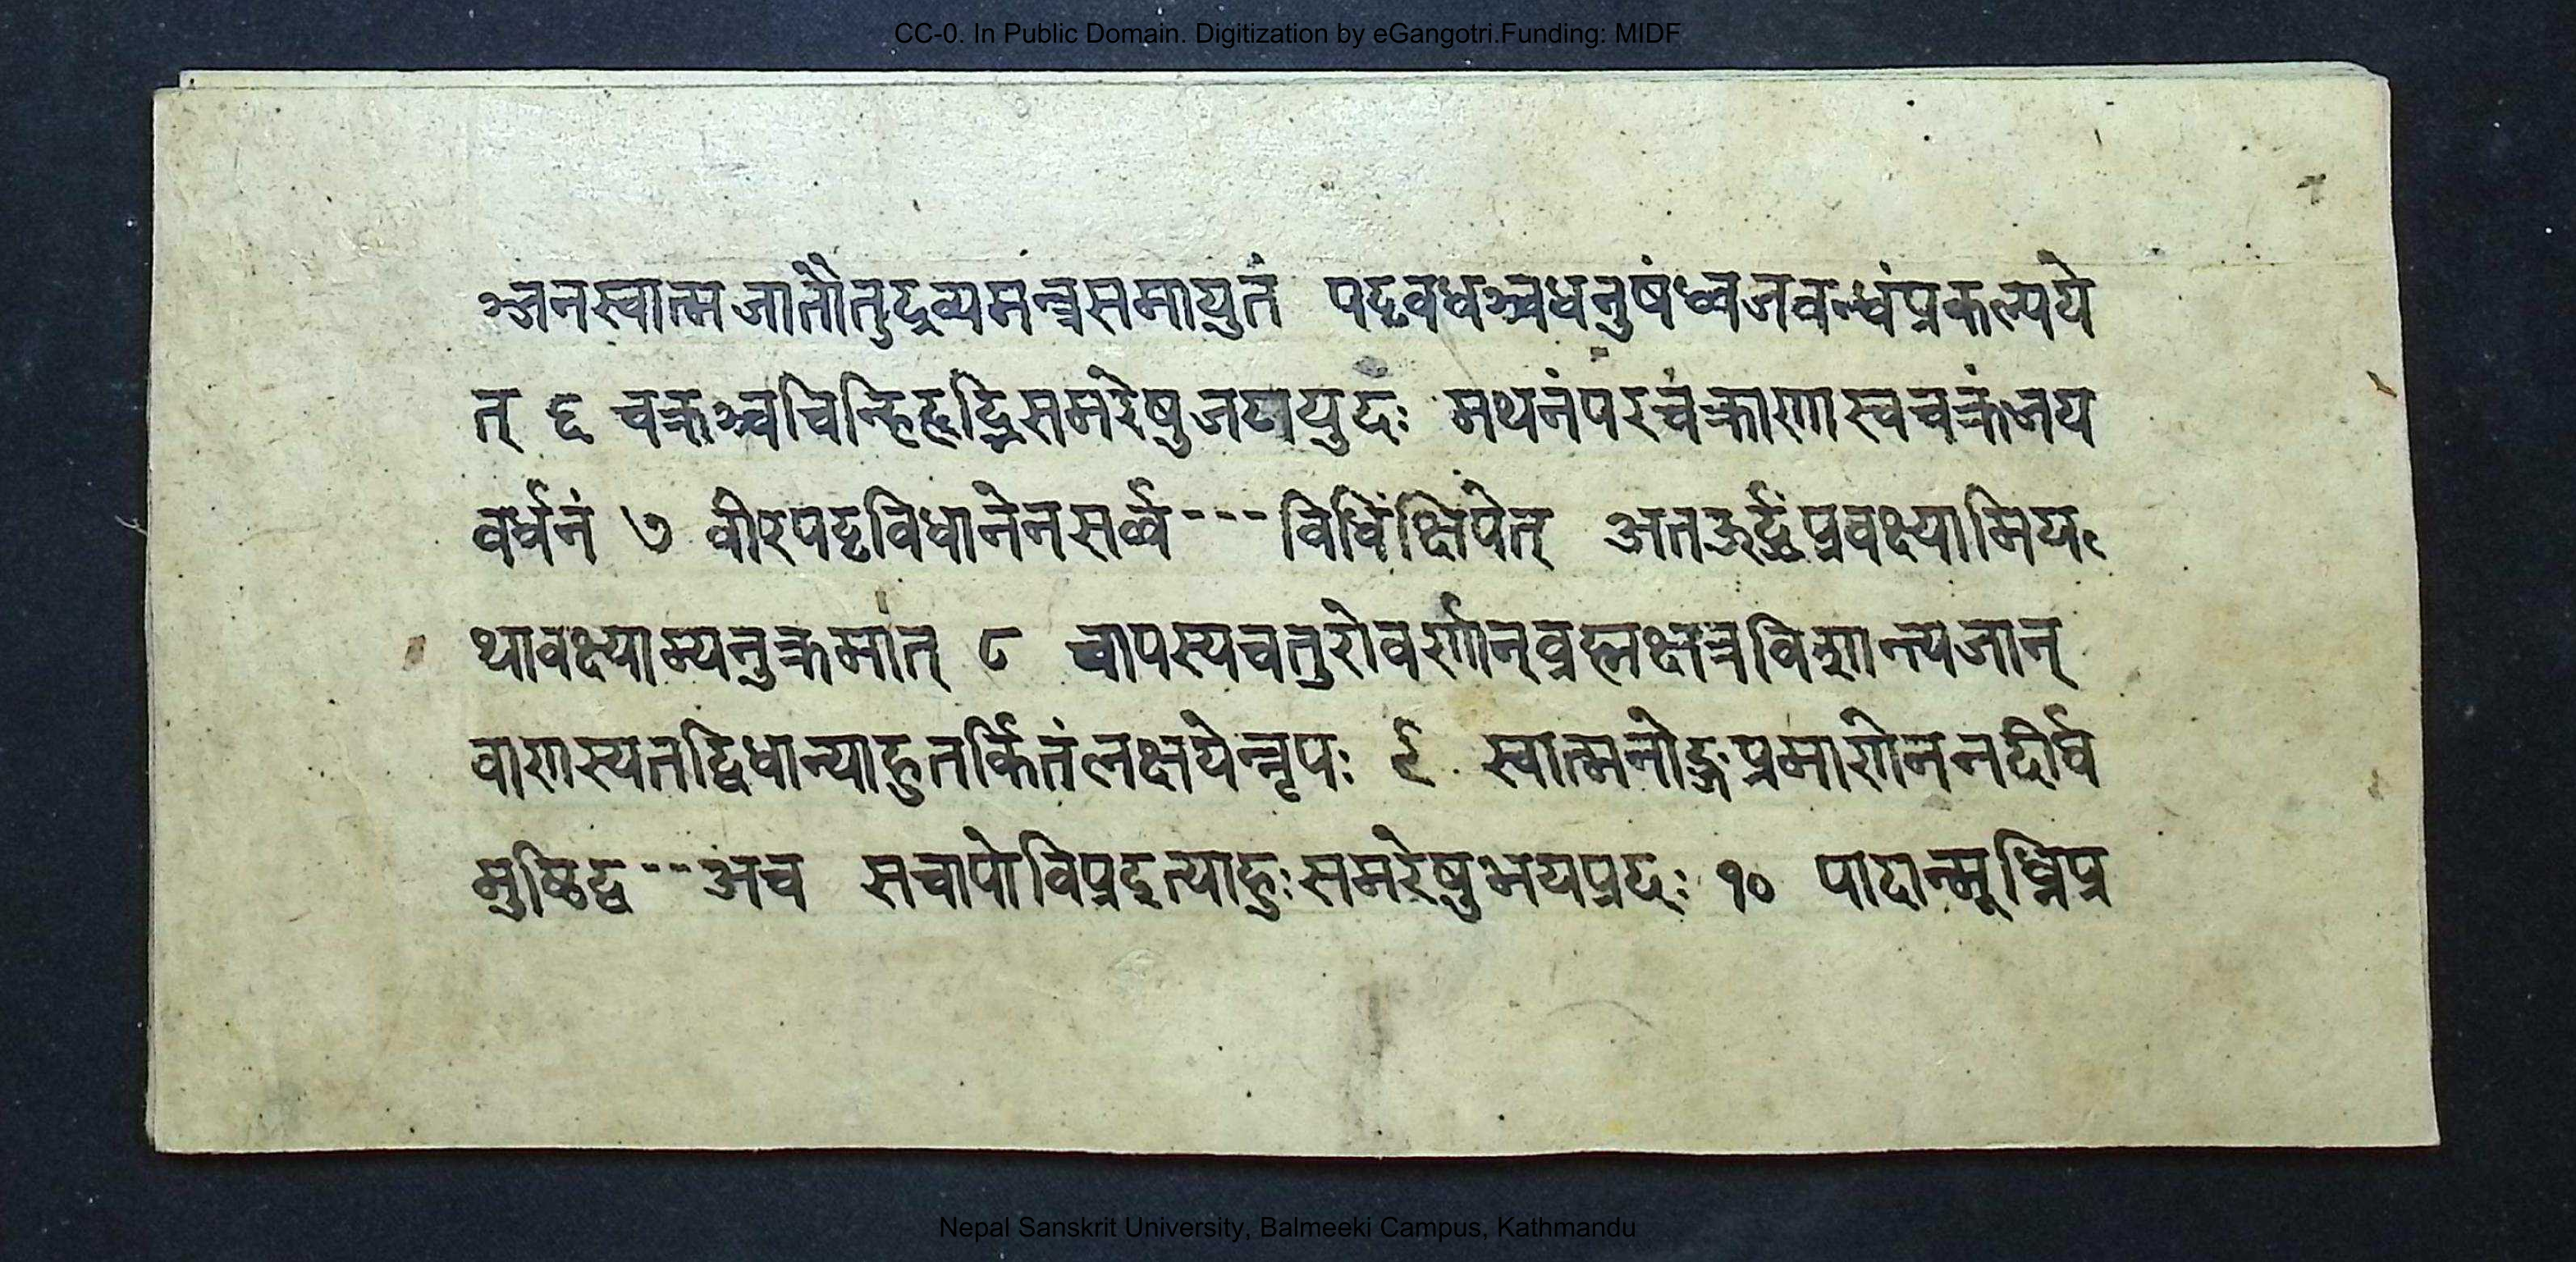 CC-0. In Public Domain. Digitization by eGangotri.Funding: MIDF
ञ्जनस्वात्मजातौतुद्रव्यमन्त्रसमायुतं पट्टवधञ्चधनुषंध्वजवन्धंप्रकल्पये
त् ६ चक्रञ्चचिन्हिहृद्रिसमरेषुजयायुदः मथनंपरचक्राणास्वचक्रंजय
वर्धनं ७ वीरपट्टविधानेनसर्व्व---विधिंक्षिपेत् अतऊर्द्ध्वंप्रवक्ष्यामिय
थावक्ष्याम्यनुक्रमात् ८ चापस्यचतुरोवर्णान्व्रह्मक्षत्रविशान्त्यजान्
वाणस्यतद्विधान्याहुतर्कितंलक्षयेन्नृपः ९ स्वात्मनोङ्गप्रमाणेननदीर्घ
मुष्टिद्व--अच सचापोविप्रइत्याहुःसमरेषुभयप्रदः १० पादान्मूध्निप्र
Nepal Sanskrit University, Balmeeki Campus, Kathmandu